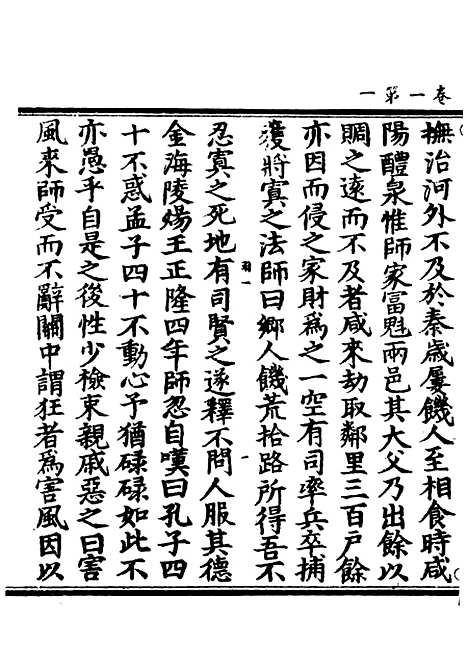 卷一第一
撫治河外不及於秦歲屢饑人至相食時咸
陽醴泉惟師家富魁兩邑其大父乃出餘以
賙之遠而不及者咸來劫取鄰里三百戶餘
亦因而侵之家財爲之一空有司率兵卒捕
獲將寘之法師曰鄉人饑荒拾路所得吾不
羽一
忍寘之死地有司賢之遂釋不問人服其德
金海陵煬王正隆四年師忽自嘆曰孔子四
十不惑孟子四十不動心予猶碌碌如此不
亦愚乎自是之後性少檢束親戚惡之曰害
風來師受而不辭關中謂狂者爲害風因以